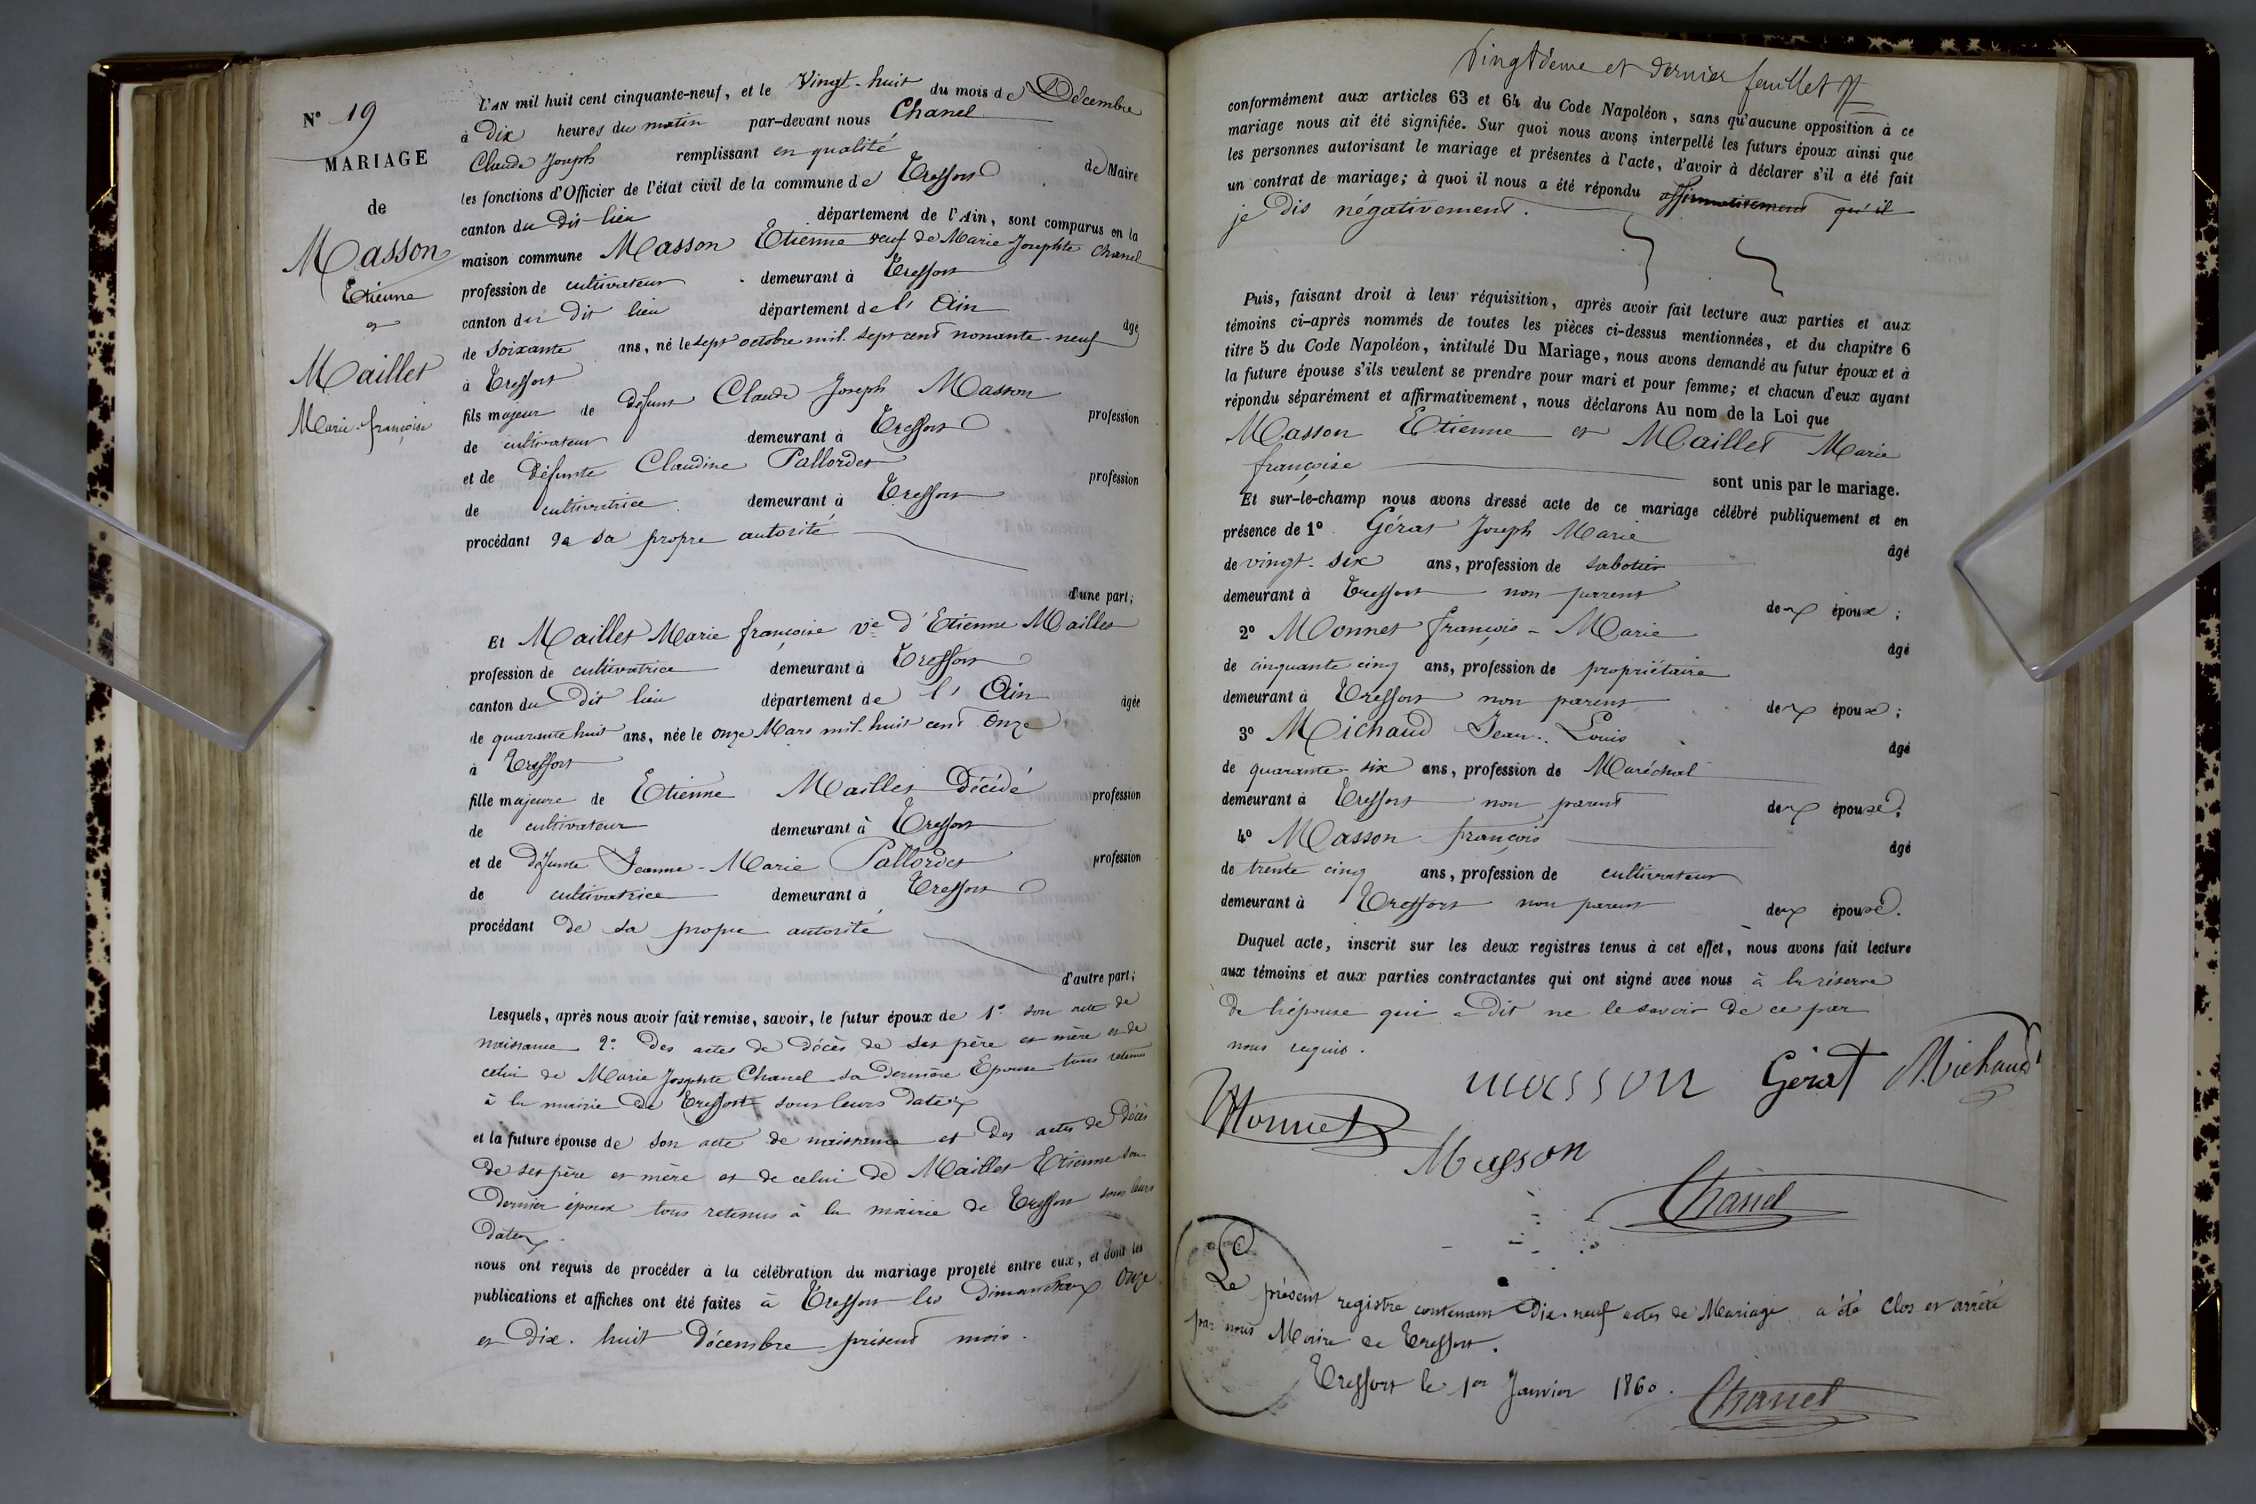 N° 19
MARIAGE
de
Masson
Etienne
et
Maillet
Marie-françoise
L'AN mil huit cent cinquante-neuf, et le Vingt-huit du mois de Décembre
à Dix heures du matin par-devant nous Chanel
Claude Joseph remplissant en qualité de Maire
les fonctions d'Officier de l'état civil de la commune de Treffort
canton du dit lieu département de l'Ain, sont comparus en la
maison commune Masson Etienne veuf de Marie Josephte Chanel
profession de cultivateur demeurant à Treffort
canton du dit lieu département de l'Ain âgé
de soixante ans, né le sept octobre mil sept cent nonante-neuf
à Treffort
fils majeur de défunt Claude Joseph Masson profession
de cultivateur demeurant à Treffort
et de défunte Claudine Pallordet profession
de cultivatrice demeurant à Treffort
procédant de sa propre autorité
d'une part;
Et Maillet Marie françoise ve d'Etienne Maillet
profession de cultivatrice demeurant à Treffort
canton du dit lieu département de l'Ain âgée
de quarante huit ans, née le onze Mars mil-huit cent onze
à Treffort
fille majeure de Etienne Maillet Décédé profession
de cultivateur demeurant à Treffort
et de défunte Jeanne-Marie Pallordet profession
de cultivatrice demeurant à Treffort
procédant de sa propre autorité
d'autre part;
Lesquels, après nous avoir fait remise, savoir, le futur époux de 1° son acte de
naissance 2° des actes de décès de ses père et mère et de
celui de Marie Josephte Chanel sa dernière Epouse tous retenus
à la mairie de Treffort sous leurs dates
et la future épouse de son acte de naissance et des actes de décès
de ses père et mère et de celui de Maillet Etienne son
dernier époux tous retenus à la mairie de Treffort sous leurs
dates.
nous ont requis de procéder à la célébration du mariage projeté entre eux, et dont les
publications et affiches ont été faites à Treffort les dimanches onze
et dix-huit décembre présent mois.
Vingtième et dernier feuillet
conformément aux articles 63 et 64 du Code Napoléon, sans qu'aucune opposition à ce
mariage nous ait été signifiée. Sur quoi nous avons interpellé les futurs époux ainsi que
les personnes autorisant le mariage et présentes à l'acte, d'avoir à déclarer s'il a été fait
un contrat de mariage; à quoi il nous a été répondu affirmativement qu'il
je dis négativement.
Puis, faisant droit à leur réquisition, après avoir fait lecture aux parties et aux
témoins ci-après nommés de toutes les pièces ci-dessus mentionnées, et du chapitre 6
titre 5 du Code Napoléon, intitulé Du Mariage, nous avons demandé au futur époux et à
la future épouse s'ils veulent se prendre pour mari et pour femme; et chacun d'eux ayant
répondu séparément et affirmativement, nous déclarons Au nom de la Loi que
Masson Etienne et Maillet Marie
françoise
sont unis par le mariage.
Et sur-le-champ nous avons dressé acte de ce mariage célébré publiquement et en
présence de 1° Gérat Joseph Marie âgé
de vingt-six ans, profession de sabotier
demeurant à Treffort non parent des époux;
2° Monnet françois-Marie âgé
de cinquante cinq ans, profession de propriétaire
demeurant à Treffort non parent des époux;
3° Michaud Jean-Louis âgé
de quarante-six ans, profession de Maréchal
demeurant à Treffort non parent des époux;
4° Masson françois âgé
de trente cinq ans, profession de cultivateur
demeurant à Treffort non parent des époux.
Duquel acte, inscrit sur les deux registres tenus à cet effet, nous avons fait lecture
aux témoins et aux parties contractantes qui ont signé avec nous à la réserve
de l'épouse qui a dit ne le savoir de ce par
nous requis.
masson Gérat Michaud
Monnet
Masson
Chanel
Le présent registre contenant Dix-neuf actes de Mariage a été Clos et arrêté
par nous Maire de Treffort.
Treffort le 1er Janvier 1860. Chanel